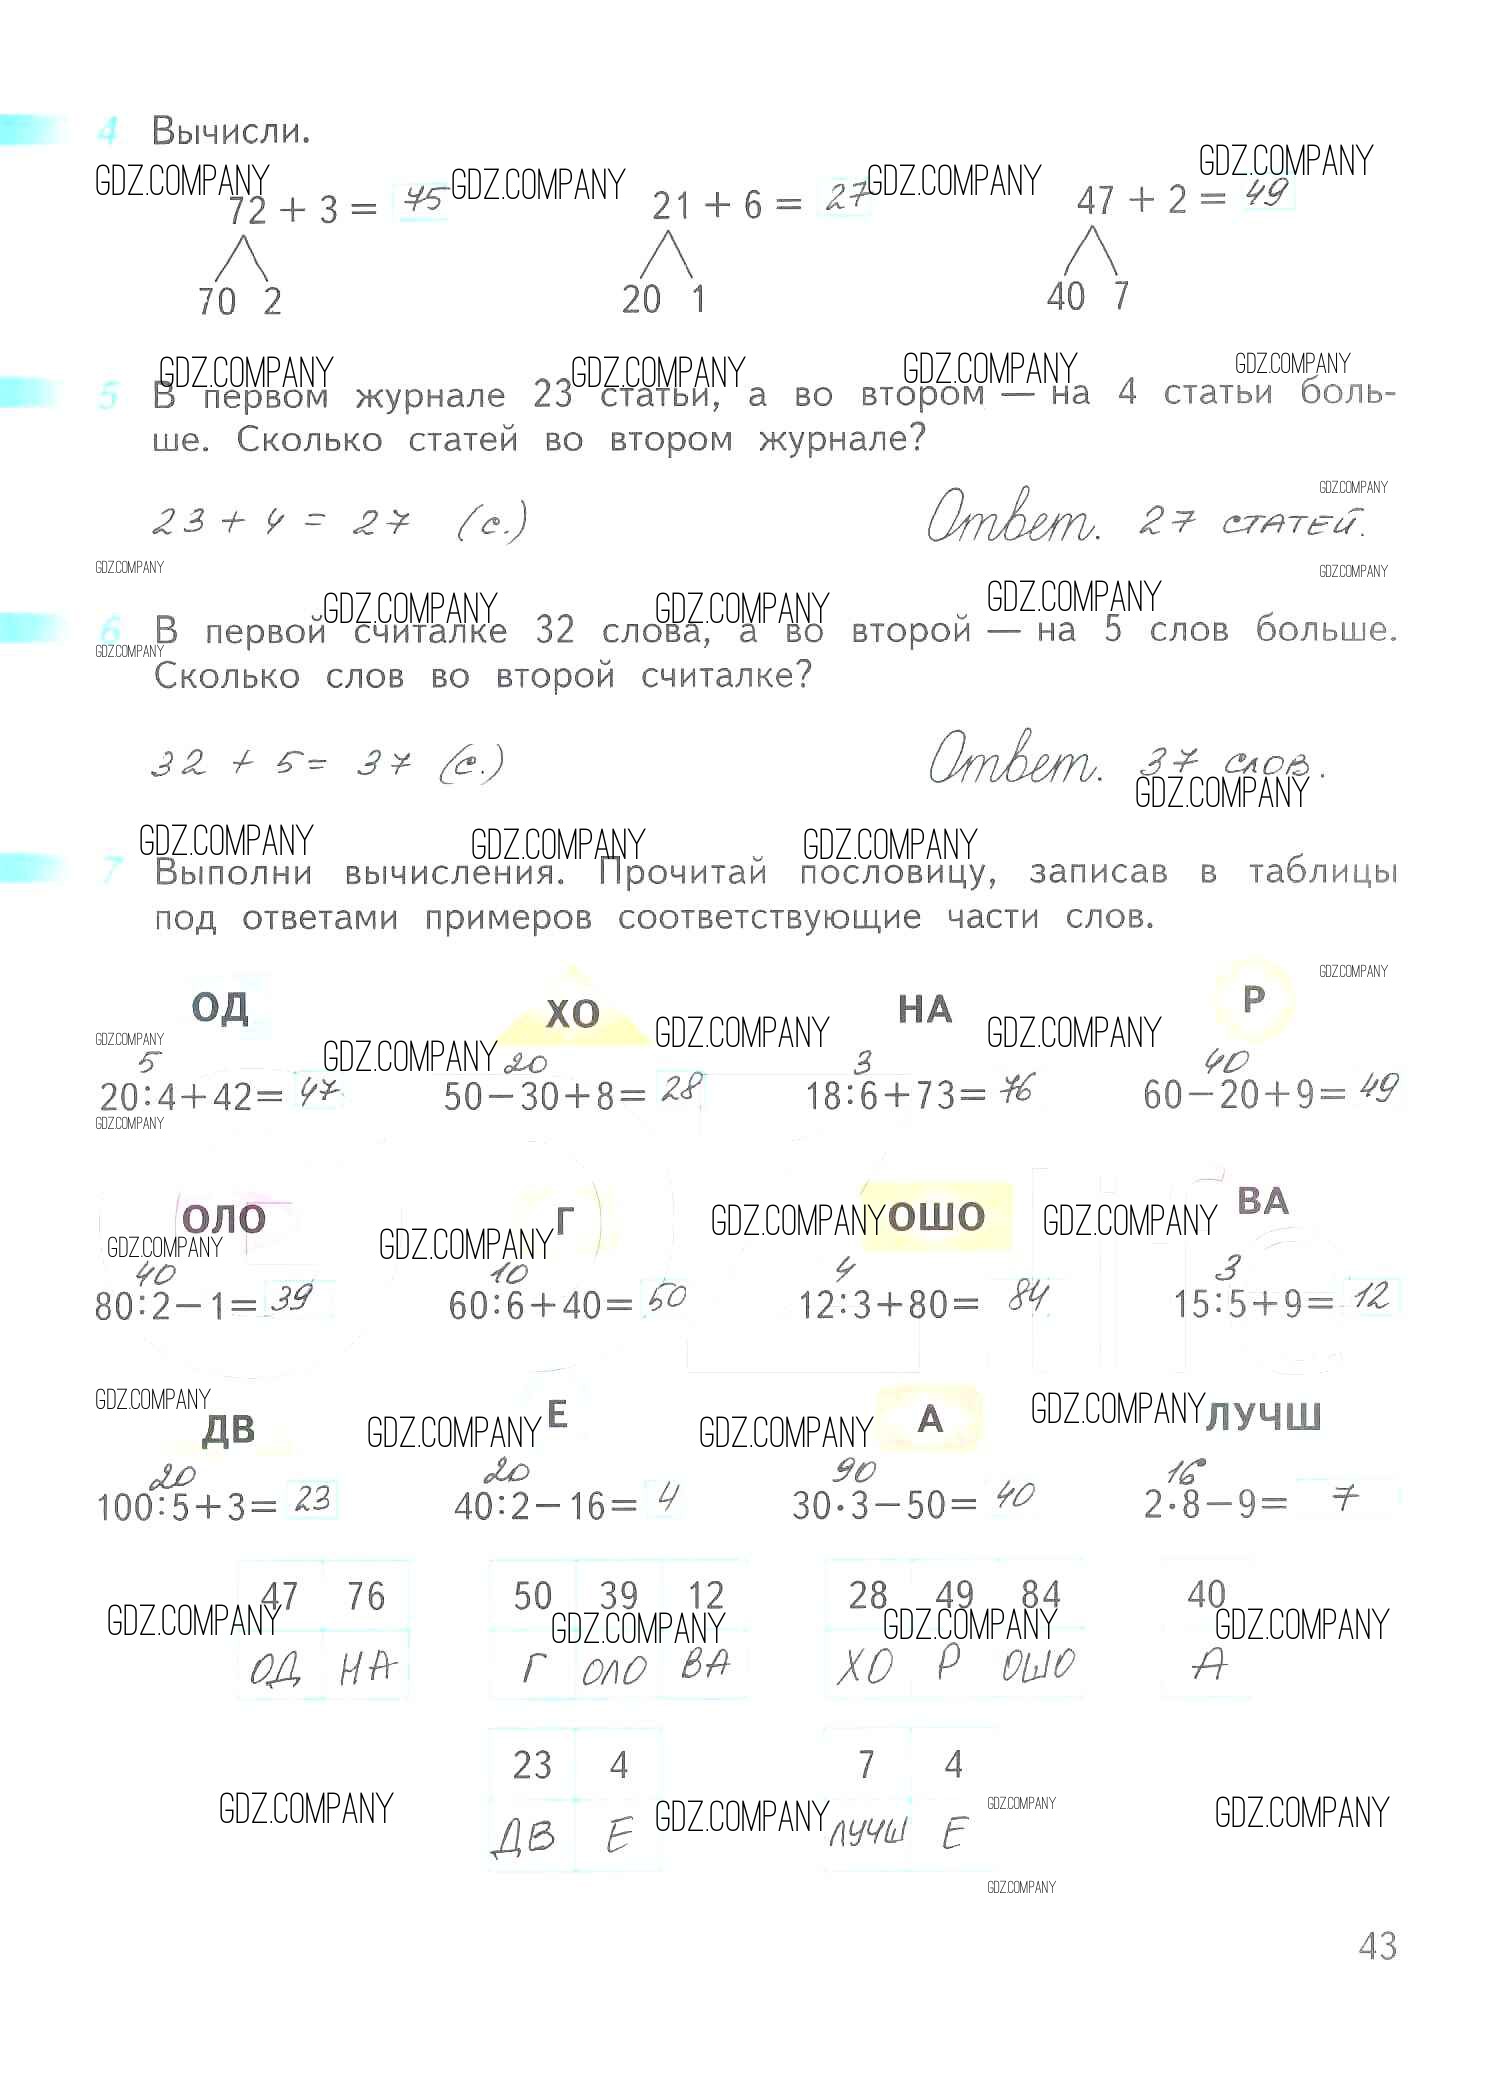 4 Вычисли.
GDZ.COMPANY GDZ.COMPANY GDZ.COMPANY GDZ.COMPANY
72 + 3 = 75 21 + 6 = 27 47 + 2 = 49
70 2 20 1 40 7
GDZ.COMPANY GDZ.COMPANY GDZ.COMPANY GDZ.COMPANY
5 В первом журнале 23 статьи, а во втором — на 4 статьи боль-
ше. Сколько статей во втором журнале?
GDZ.COMPANY
23 + 4 = 27 (с.) Ответ. 27 статей.
GDZ.COMPANY GDZ.COMPANY
GDZ.COMPANY GDZ.COMPANY GDZ.COMPANY
6 В первой считалке 32 слова, а во второй — на 5 слов больше.
GDZ.COMPANY
Сколько слов во второй считалке?
32 + 5 = 37 (с.) Ответ. 37 слов.
GDZ.COMPANY
GDZ.COMPANY GDZ.COMPANY GDZ.COMPANY
7 Выполни вычисления. Прочитай пословицу, записав в таблицы
под ответами примеров соответствующие части слов.
GDZ.COMPANY
ОД ХО НА Р
GDZ.COMPANY GDZ.COMPANY GDZ.COMPANY GDZ.COMPANY
5 20 3 40
20:4+42= 47 50−30+8= 28 18:6+73= 76 60−20+9= 49
GDZ.COMPANY
ОЛО Г ОШО ВА
GDZ.COMPANY GDZ.COMPANY GDZ.COMPANY GDZ.COMPANY
40 10 4 3
80:2−1= 39 60:6+40= 50 12:3+80= 84 15:5+9= 12
GDZ.COMPANY GDZ.COMPANY GDZ.COMPANY GDZ.COMPANY
ДВ Е А ЛУЧШ
20 20 90 16
100:5+3= 23 40:2−16= 4 30·3−50= 40 2·8−9= 7
47 76 50 39 12 28 49 84 40
GDZ.COMPANY GDZ.COMPANY GDZ.COMPANY GDZ.COMPANY
ОД НА Г ОЛО ВА ХО Р ОШО А
23 4 7 4
GDZ.COMPANY GDZ.COMPANY GDZ.COMPANY GDZ.COMPANY
ДВ Е ЛУЧШ Е
GDZ.COMPANY
43